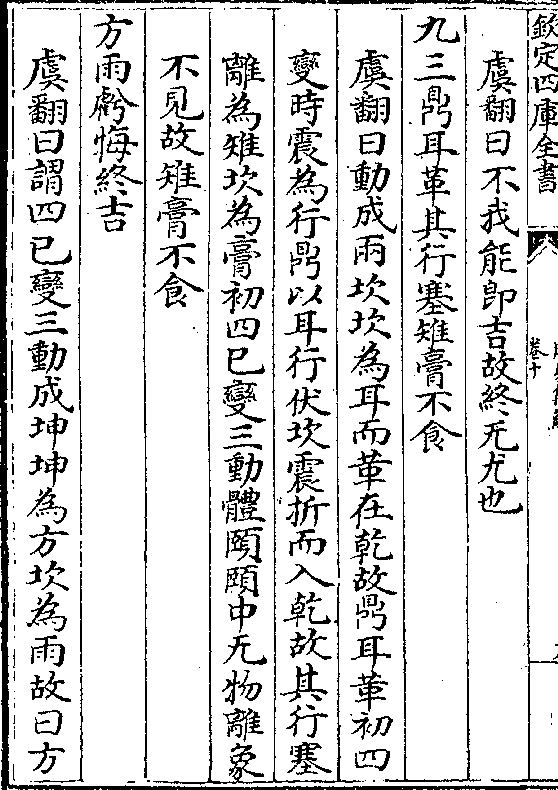 欽定四庫全書
卷十
虞翻曰不我能即吉故終无尤也
九三鼎耳革其行塞雉膏不食
虞翻曰動成兩坎坎為耳而革在乾故鼎耳革初四
變時震為行鼎以耳行伏坎震折而入乾故其行塞
離為雉坎為膏初四已變三動體頤頤中无物離象
不見故雉膏不食
方雨虧悔終吉
虞翻曰謂四已變三動成坤坤為方坎為雨故曰方